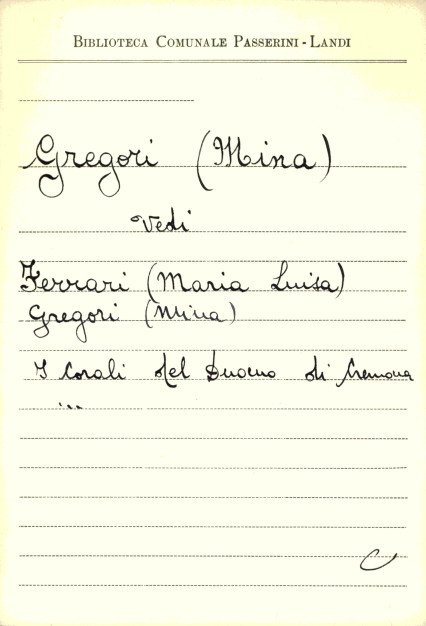 BIBLIOTECA COMUNALE PASSERINI - LANDI
Gregori (Mina)
Vedi
Ferrari (Maria Luisa)
Gregori (Mina)
I Corali del Duomo di Cremona
...
C